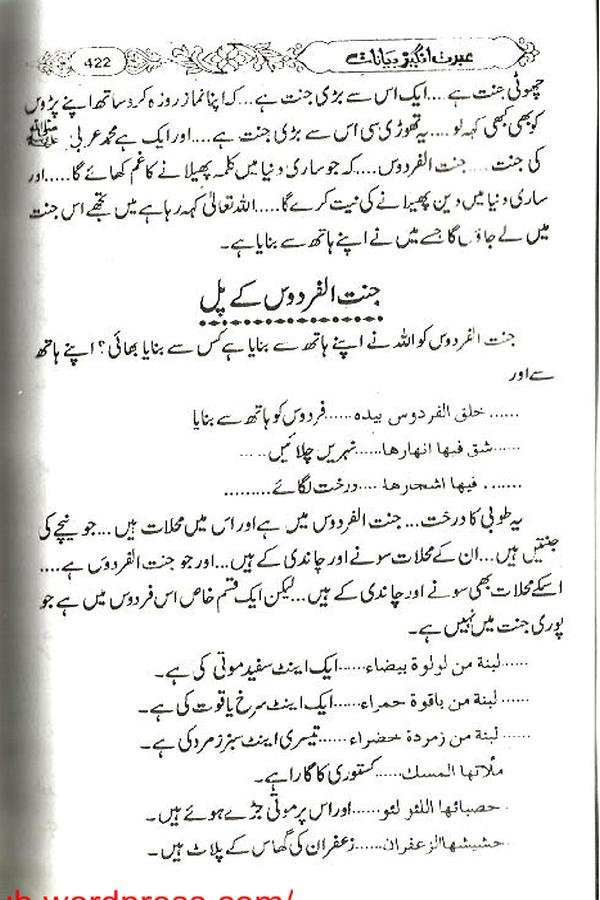 عبرت انگیز بیانات
422
چھوٹی جنت ہے....ایک اس سے بڑی جنت ہے...کہ اپنا نماز روزہ کرو ساتھ اپنے پڑوس
کو بھی کبھی کہہ لو....یہ تھوڑی سی اس سے بڑی جنت ہے....اور ایک ہے محمد عربی ﷺ
کی جنت....جنت الفردوس....کہ جو ساری دنیا میں کلمہ پھیلانے کا غم کھائے گا.....اور
ساری دنیا میں دین پھیلانے کی نیت کرے گا.....اللہ تعالیٰ کہہ رہا ہے میں تجھے اس جنت
میں لے جاؤں گا جسے میں نے اپنے ہاتھ سے بنایا ہے۔
جنت الفردوس کے پل
جنت الفردوس کو اللہ نے اپنے ہاتھ سے بنایا ہے کس سے بنایا بھائی؟ اپنے ہاتھ
سے اور
......خلق الفردوس بیدہ......فردوس کو ہاتھ سے بنایا
......شق فیھا انھارھا......نہریں چلائیں.....
.......فیھا اشجارھا....درخت لگائے.........
یہ طوبی کا درخت...جنت الفردوس میں ہے اور اس میں محلات ہیں...جو نیچے کی
جنتیں ہیں...ان کے محلات سونے اور چاندی کے ہیں...اور جو جنت الفردوس ہے....
اسکے محلات بھی سونے اور چاندی کے ہیں...لیکن ایک قسم خاص اس فردوس میں ہے جو
پوری جنت میں نہیں ہے۔
......لبنة من لولوة بیضاء......ایک اینٹ سفید موتی کی ہے۔
......لبنة من یاقوة حمراء......ایک اینٹ سرخ یاقوت کی ہے۔
......لبنة من زمردة خضراء......تیسری اینٹ سبز زمرد کی ہے۔
ملاتها المسك......کستوری کا گارا ہے۔
حصبائها اللئو لئو......اور اس پر موتی جڑے ہوئے ہیں۔
حشیشها الزعفران......زعفران کی گھاس کے پلاٹ ہیں۔
b.wordpress.com/